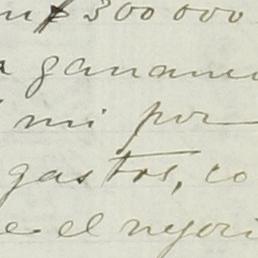 $ 300 000
a gananci
mi por
gastos, co
e el negoci